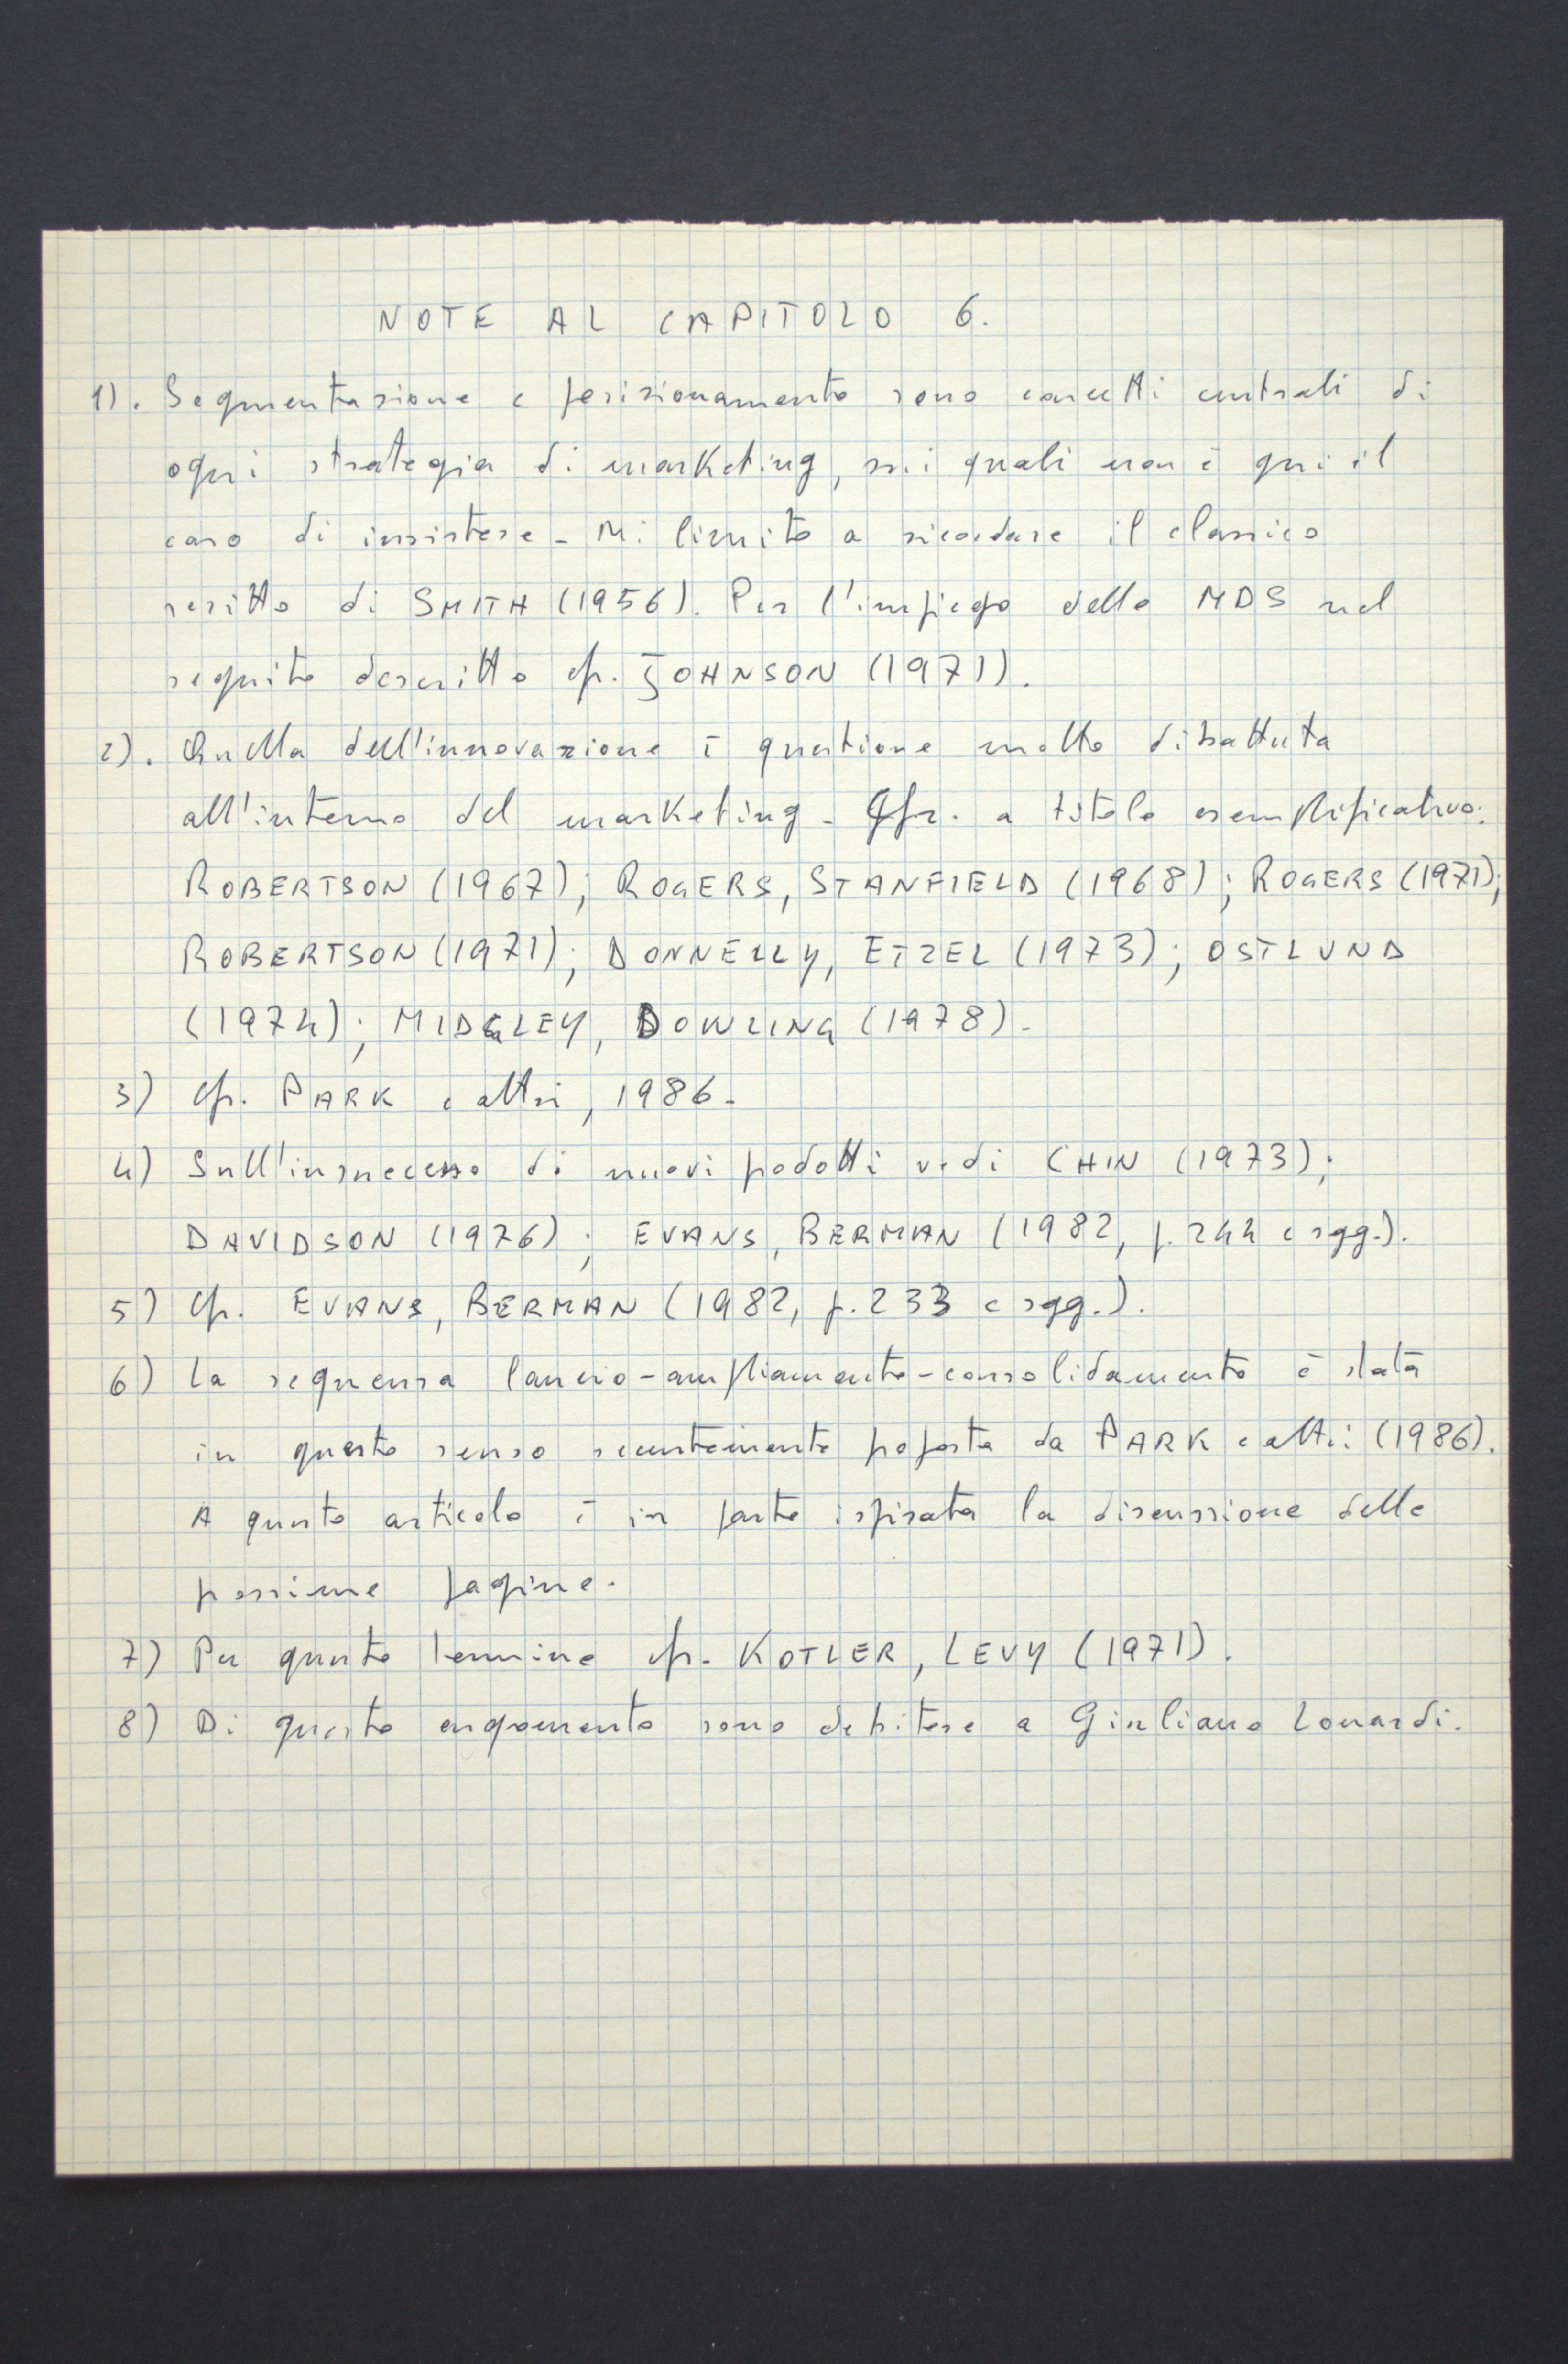 NOTE AL CAPITOLO 6.
1). Segmentazione e posizionamento sono concetti centrali di
ogni strategia di marketing, sui quali non è qui il
caso di insistere - Mi limito a ricordare il classico
scritto di SMITH (1956). Per l'impiego dello MDS nel
seguito descritto cfr. JOHNSON (1971).
2). Quella dell'innovazione è questione molto dibattuta
all'interno del marketing - Cfr. a titolo esemplificativo:
ROBERTSON (1967); ROGERS, STANFIELD (1968); ROGERS (1971);
ROBERTSON (1971); DONNELLY, ETZEL (1973); OSTLUND
(1974); MIDGLEY, DOWLING (1978).
3) cfr. PARK e altri, 1986.
4) Sull'insuccesso di nuovi podotti vedi CHIN (1973);
DAVIDSON (1976); EVANS, BERMAN (1982, p. 244 e sgg.).
5) cfr. EVANS, BERMAN (1982, p. 233 e sgg.).
6) La sequenza lancio-ampliamento-consolidamento è stata
in questo senso recentemente poposta da PARK e altri (1986).
A questo articolo è in parte ispirata la discussione delle
possime pagine.
7) Per questo termine cfr. KOTLER, LEVY (1971).
8) Di questo argomento sono debitore a Giuliano Lonardi.